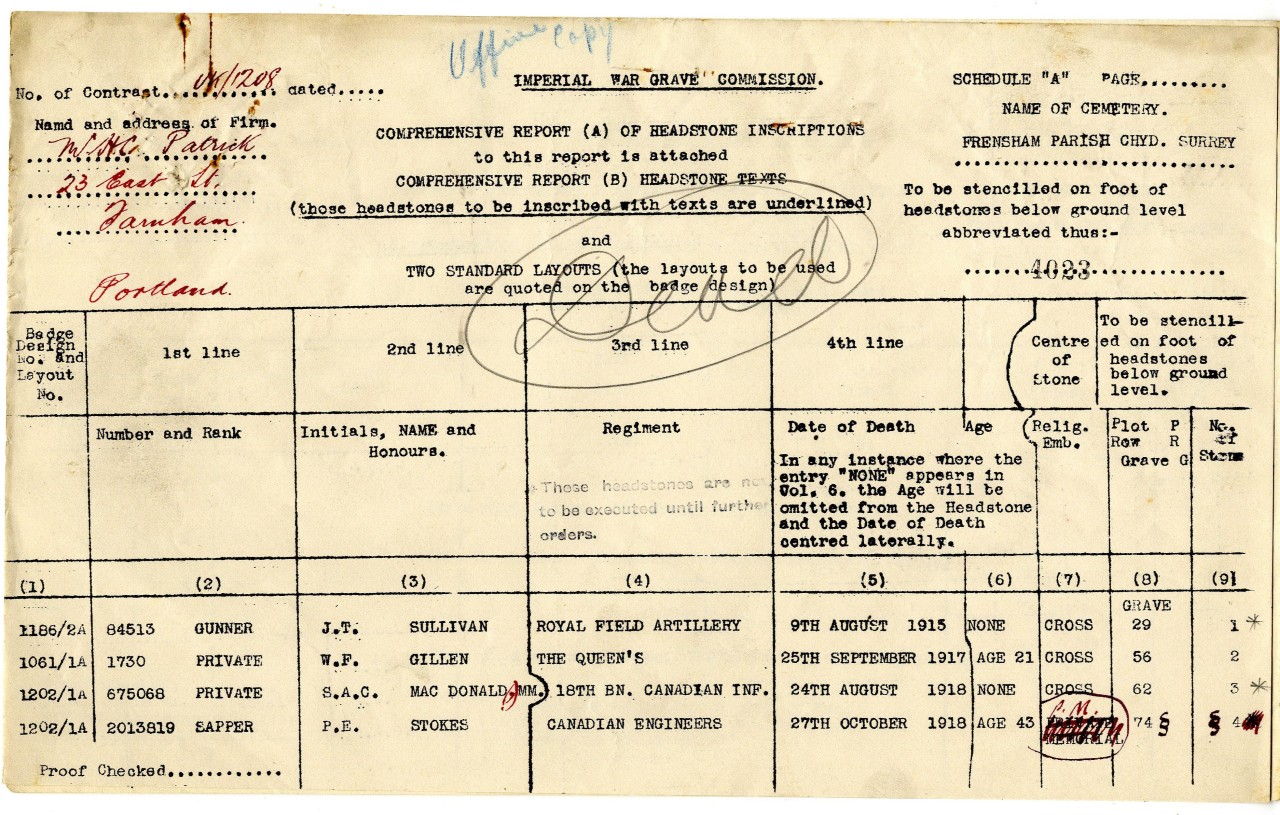 Office Copy
No. of Contract...UK/1208...dated.....
IMPERIAL WAR GRAVE COMMISSION.
SCHEDULE "A" PAGE.........
Namd and address of Firm.
NAME OF CEMETERY.
Patrick
COMPREHENSIVE REPORT (A) OF HEADSTONE INSCRIPTIONS
FRENSHAM PARISH CHYD. SURREY
to this report is attached
23 East St.
COMPREHENSIVE REPORT (B) HEADSTONE TEXTS
To be stencilled on foot of
(those headstones to be inscribed with texts are underlined)
headstones below ground level
Farnham.
abbreviated thus:-
and
TWO STANDARD LAYOUTS (the layouts to be used
4023
are quoted on the badge design)
Portland.
Dead
Badge Design No. and Layout No.
1st line
2nd line
3rd line
4th line
Centre of Stone
To be stencill-ed on foot of headstones below ground level.
Number and Rank
Initials, NAME and Honours.
Regiment
Date of Death
Age
Relig. Emb.
Plot P
Row R
Grave G
No. of Stone
These headstones are not
to be executed until further
orders.
In any instance where the
entry "NONE" appears in
Vol. 6. the Age will be
omitted from the Headstone
and the Date of Death
centred laterally.
(1) (2) (3) (4) (5) (6) (7) (8) (9)
GRAVE
1186/2A 84513 GUNNER J.T. SULLIVAN ROYAL FIELD ARTILLERY 9TH AUGUST 1915 NONE CROSS 29 1 *
1061/1A 1730 PRIVATE W.F. GILLEN THE QUEEN'S 25TH SEPTEMBER 1917 AGE 21 CROSS 56 2
1202/1A 675068 PRIVATE S.A.C. MAC DONALD, MM. 18TH BN. CANADIAN INF. 24TH AUGUST 1918 NONE CROSS 62 3 *
1202/1A 2013819 SAPPER P.E. STOKES CANADIAN ENGINEERS 27TH OCTOBER 1918 AGE 43 P.M. MEMORIAL 74 § § 4
Proof Checked............